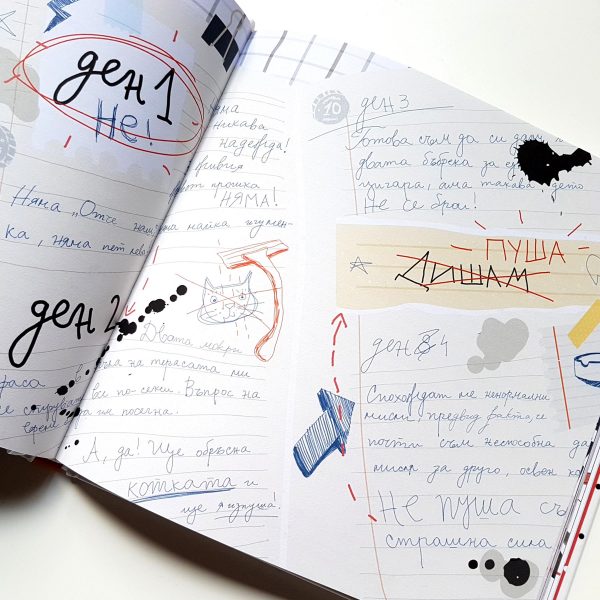 ден 1
Не!
надежда!
прошка
НЯМА!
Няма „Отче наш“, няма майка, игумен-
ка, няма пет лева
ден 2
Двата мокри
на терасата ми
по-секи. Въпрос на
време
да ги посегна.
А, да! Ще обръсна
котката и
ще я изпуша!
10
ден 3
Готова съм да си дам и
двата бъбрека за
цигара, ама такава, дето
не се брои!
ПУША
ДИШАМ
ден 4
Спохождат ме ненормални
мисли, предвид факта, че
почти съм неспособна да
мисля за друго, освен
Не пуша
страшна сила